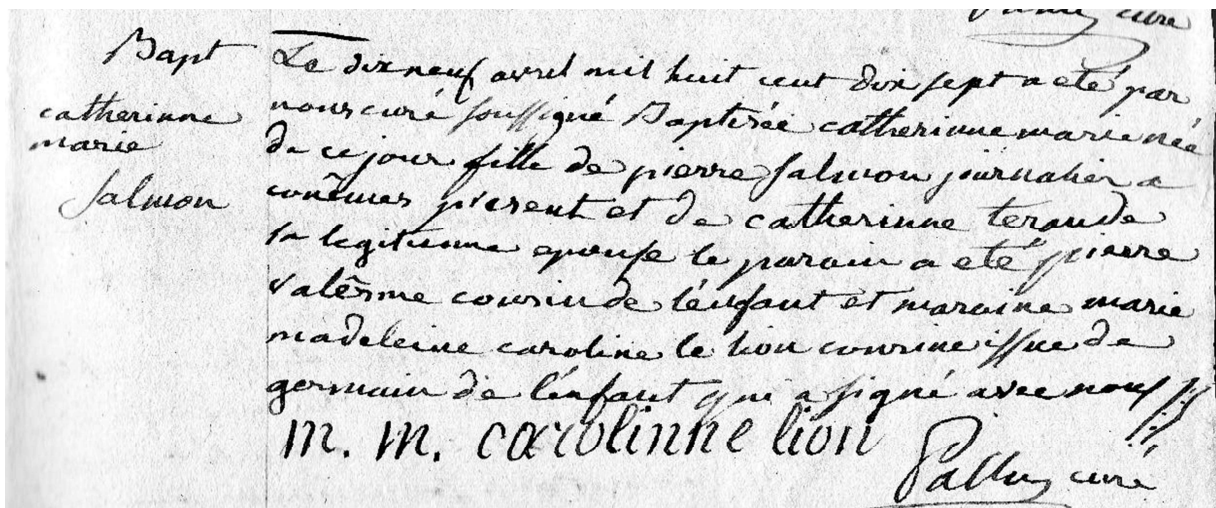 curé
Bapt
catherinne
marie
Salmon
Le dix neuf avril mil huit cent dix sept a eté par
nous curé soussigné Baptisée catherinne marie née
de ce jour fille de pierre Salmon journalier a
conêmes present et de catherinne teraude
sa legitimme epouse le parain a eté pierre
Valêsme cousin de l'énfant et maraine marie
madeleine caroline le lion cousine issue de
germain de l'énfant qui a signé avec nous
m. m. carolinne lion
Pallu curé